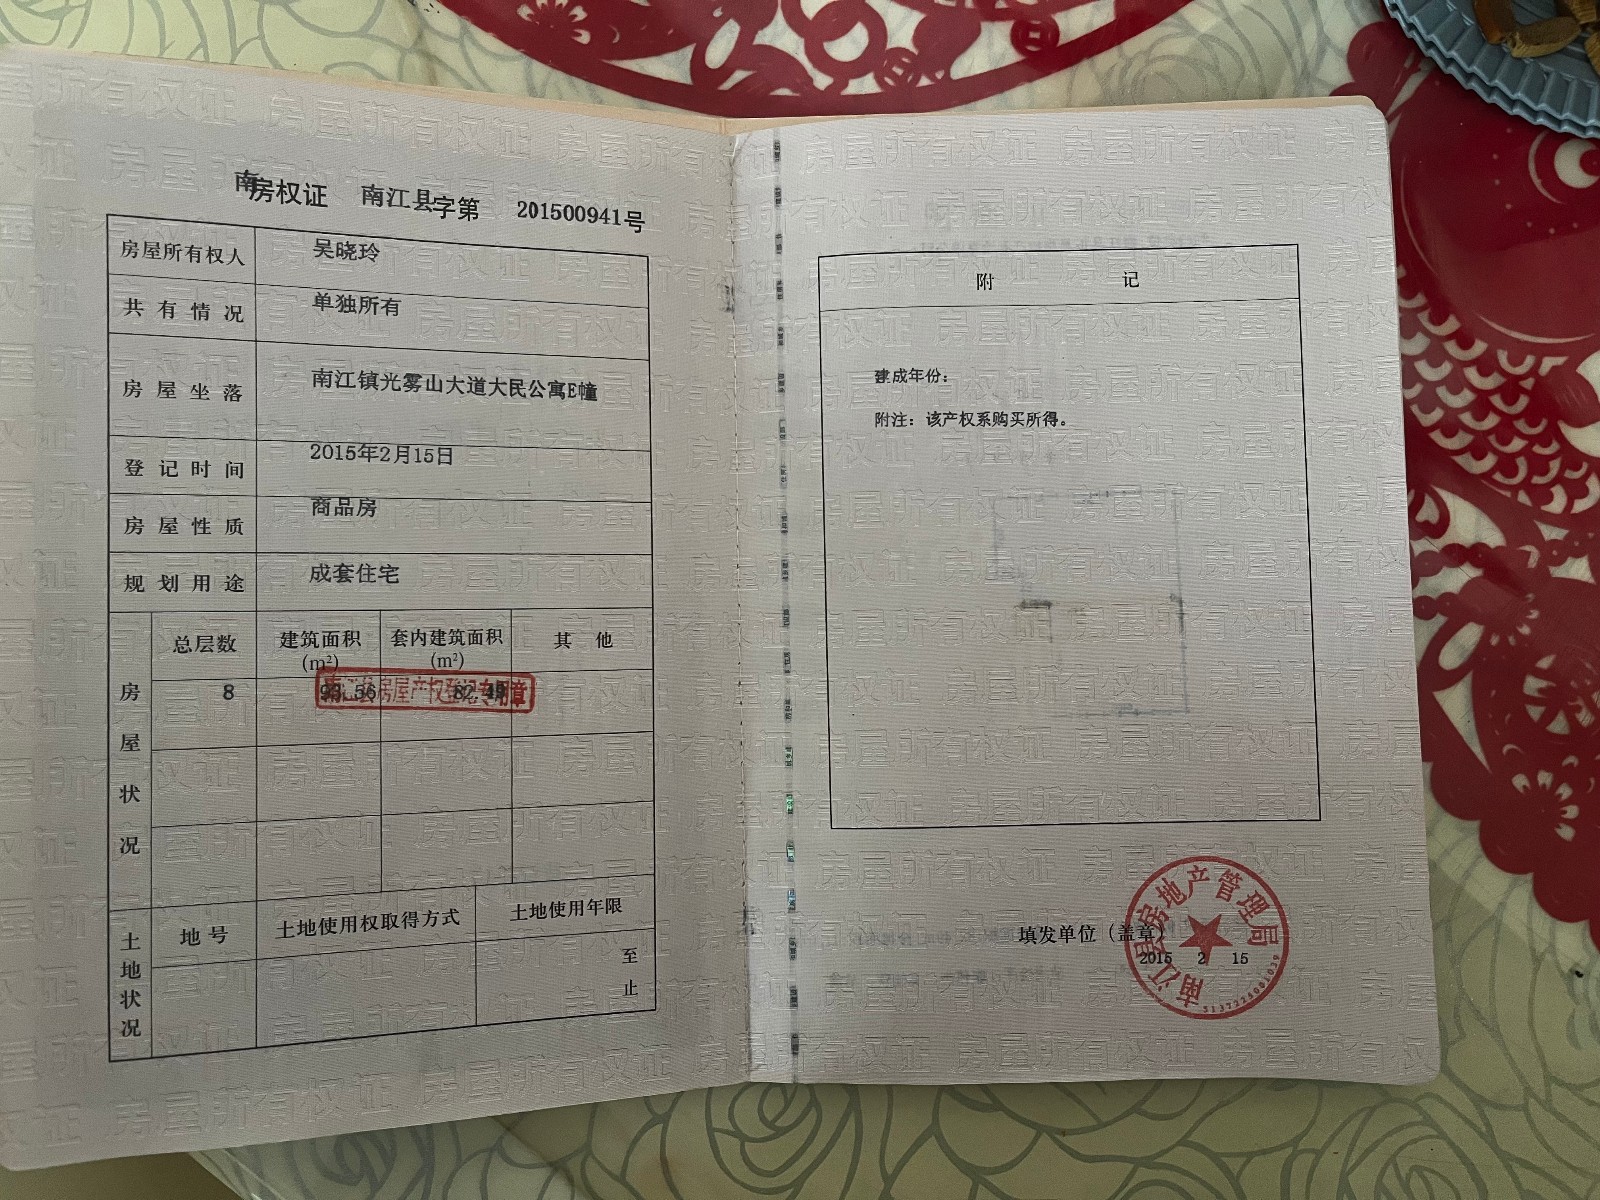 南房权证 南江县字第 201500941号
房屋所有权人 吴晓玲
共有情况 单独所有
房屋坐落 南江镇光雾山大道大民公寓E幢
登记时间 2015年2月15日
房屋性质 商品房
规划用途 成套住宅
房屋状况
总层数 建筑面积(m²) 套内建筑面积(m²) 其他
8 93.56 82.49
南江县房屋产权登记专用章
土地状况
地号 土地使用权取得方式 土地使用年限
至
止
附记
建成年份：
附注：该产权系购买所得。
填发单位（盖章）
南江县房地产管理局
2015 2 15